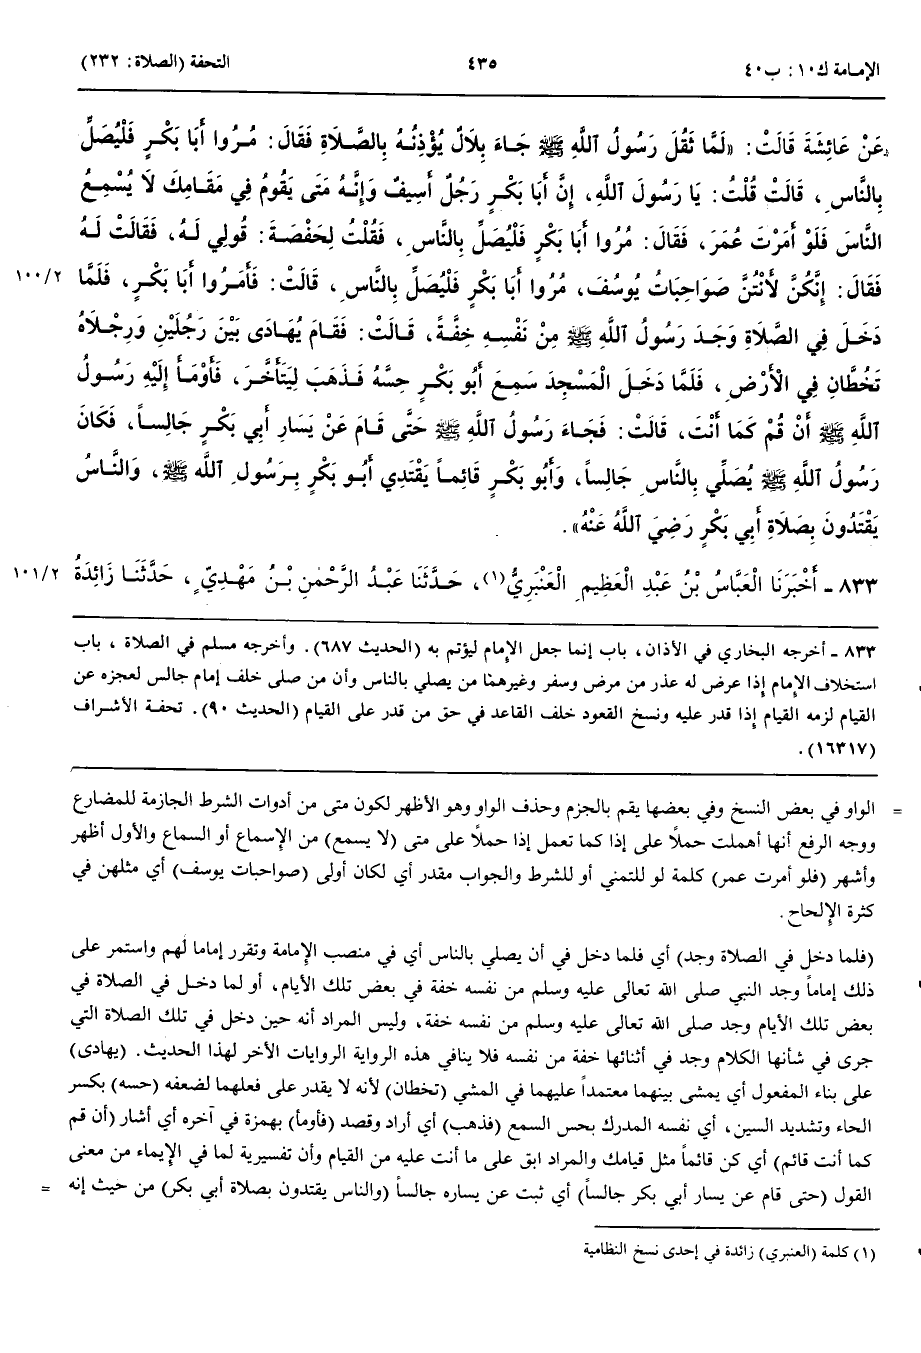 الإمامة ك١٠: ب٤٠
٤٣٥
التحفة (الصلاة: ٢٣٢)
عَنْ عَائِشَةَ قَالَتْ: «لَمَّا ثَقُلَ رَسُولُ اللَّهِ ﷺ جَاءَ بِلَالٌ يُؤْذِنُهُ بِالصَّلَاةِ فَقَالَ: مُرُوا أَبَا بَكْرٍ فَلْيُصَلِّ
بِالنَّاسِ، قَالَتْ قُلْتُ: يَا رَسُولَ اللَّهِ، إِنَّ أَبَا بَكْرٍ رَجُلٌ أَسِيفٌ وَإِنَّهُ مَتَى يَقُومُ فِي مَقَامِكَ لَا يُسْمِعُ
النَّاسَ فَلَوْ أَمَرْتَ عُمَرَ، فَقَالَ: مُرُوا أَبَا بَكْرٍ فَلْيُصَلِّ بِالنَّاسِ، فَقُلْتُ لِحَفْصَةَ: قُولِي لَهُ، فَقَالَتْ لَهُ
فَقَالَ: إِنَّكُنَّ لَأَنْتُنَّ صَوَاحِبَاتُ يُوسُفَ، مُرُوا أَبَا بَكْرٍ فَلْيُصَلِّ بِالنَّاسِ، قَالَتْ: فَأَمَرُوا أَبَا بَكْرٍ، فَلَمَّا ١٠٠/٢
دَخَلَ فِي الصَّلَاةِ وَجَدَ رَسُولُ اللَّهِ ﷺ مِنْ نَفْسِهِ خِفَّةً، قَالَتْ: فَقَامَ يُهَادَى بَيْنَ رَجُلَيْنِ وَرِجْلَاهُ
تَخُطَّانِ فِي الْأَرْضِ، فَلَمَّا دَخَلَ الْمَسْجِدَ سَمِعَ أَبُو بَكْرٍ حِسَّهُ فَذَهَبَ لِيَتَأَخَّرَ، فَأَوْمَأَ إِلَيْهِ رَسُولُ
اللَّهِ ﷺ أَنْ قُمْ كَمَا أَنْتَ، قَالَتْ: فَجَاءَ رَسُولُ اللَّهِ ﷺ حَتَّى قَامَ عَنْ يَسَارِ أَبِي بَكْرٍ جَالِساً، فَكَانَ
رَسُولُ اللَّهِ ﷺ يُصَلِّي بِالنَّاسِ جَالِساً، وَأَبُو بَكْرٍ قَائِماً يَقْتَدِي أَبُو بَكْرٍ بِرَسُولِ اللَّهِ ﷺ، وَالنَّاسُ
يَقْتَدُونَ بِصَلَاةِ أَبِي بَكْرٍ رَضِيَ اللَّهُ عَنْهُ».
٨٣٣ ـ أَخْبَرَنَا الْعَبَّاسُ بْنُ عَبْدِ الْعَظِيمِ الْعَنْبَرِيُّ(١)، حَدَّثَنَا عَبْدُ الرَّحْمٰنِ بْنُ مَهْدِيٍّ، حَدَّثَنَا زَائِدَةُ ١٠١/٢
٨٣٣ ـ أخرجه البخاري في الأذان، باب إنما جعل الإمام ليؤتم به (الحديث ٦٨٧). وأخرجه مسلم في الصلاة، باب
استخلاف الإمام إذا عرض له عذر من مرض وسفر وغيرهما من يصلي بالناس وأن من صلى خلف إمام جالس لعجزه عن
القيام لزمه القيام إذا قدر عليه ونسخ القعود خلف القاعد في حق من قدر على القيام (الحديث ٩٠). تحفة الأشراف
(١٦٣١٧).
= الواو في بعض النسخ وفي بعضها يقم بالجزم وحذف الواو وهو الأظهر لكون متى من أدوات الشرط الجازمة للمضارع
ووجه الرفع أنها أهملت حملاً على إذا كما تعمل إذا حملاً على متى (لا يسمع) من الإسماع أو السماع والأول أظهر
وأشهر (فلو أمرت عمر) كلمة لو للتمني أو للشرط والجواب مقدر أي لكان أولى (صواحبات يوسف) أي مثلهن في
كثرة الإلحاح.
(فلما دخل في الصلاة وجد) أي فلما دخل في أن يصلي بالناس أي في منصب الإمامة وتقرر إماما لهم واستمر على
ذلك إماماً وجد النبي صلى الله تعالى عليه وسلم من نفسه خفة في بعض تلك الأيام، أو لما دخل في الصلاة في
بعض تلك الأيام وجد صلى الله تعالى عليه وسلم من نفسه خفة، وليس المراد أنه حين دخل في تلك الصلاة التي
جرى في شأنها الكلام وجد في أثنائها خفة من نفسه فلا ينافي هذه الرواية الروايات الأخر لهذا الحديث. (يهادى)
على بناء المفعول أي يمشى بينهما معتمداً عليهما في المشي (تخطان) لأنه لا يقدر على فعلهما لضعفه (حسه) بكسر
الحاء وتشديد السين، أي نفسه المدرك بحس السمع (فذهب) أي أراد وقصد (فأومأ) بهمزة في آخره أي أشار (أن قم
كما أنت قائم) أي كن قائماً مثل قيامك والمراد ابق على ما أنت عليه من القيام وأن تفسيرية لما في الإيماء من معنى
القول (حتى قام عن يسار أبي بكر جالساً) أي ثبت عن يساره جالساً (والناس يقتدون بصلاة أبي بكر) من حيث إنه =
(١) كلمة (العنبري) زائدة في إحدى نسخ النظامية